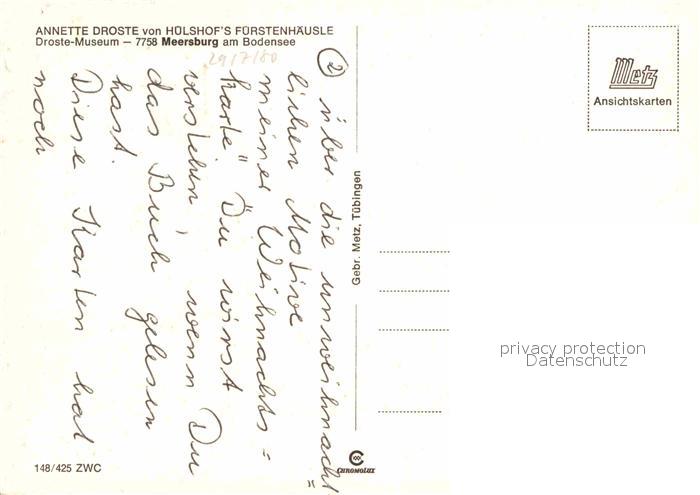 ANNETTE DROSTE von HÜLSHOF'S FÜRSTENHÄUSLE
Droste-Museum – 7758 Meersburg am Bodensee
29/7/80
② über die unweihnacht=
lichen Motive
meiner Weihnachts=
karte" Du wirst
verstehen, wenn Du
das Buch gelesen
hast.
Diese Karten hat
noch
Gebr. Metz, Tübingen
Metz
Ansichtskarten
privacy protection
Datenschutz
148/425 ZWC
CHROMOLUX